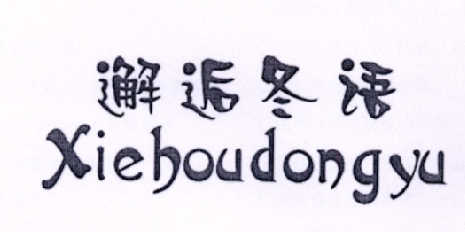 邂逅冬语
Xiehoudongyu